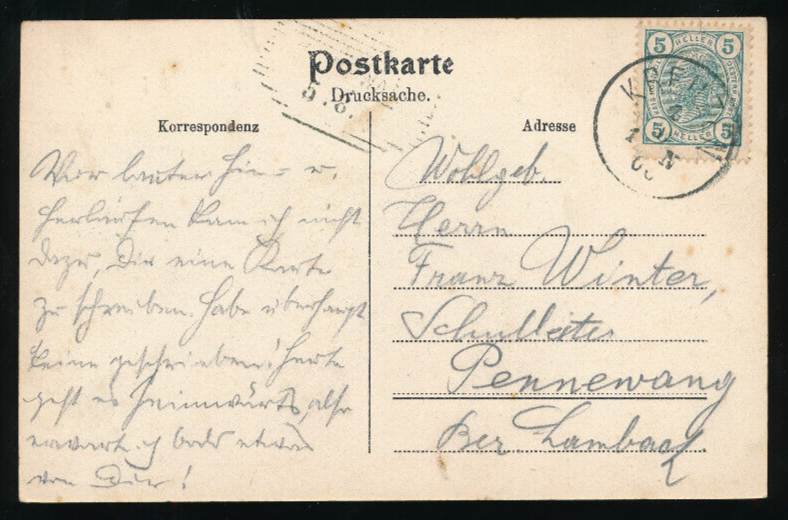 Postkarte
Drucksache.
Korrespondenz
Adresse
5 HELLER 5
5 HELLER 5
Vor lauter Hin- u.
Herlaufen kam ich nicht
dazu, Dir eine Karte
zu schreiben. Habe überhaupt
keine geschrieben! Heute
geht es heimwärts, also
erwarte ich bald etwas
von Dir!
Wohlgeb.
Herrn
Franz Winter,
Schulleiter
Pennewang
Bez. Lambach